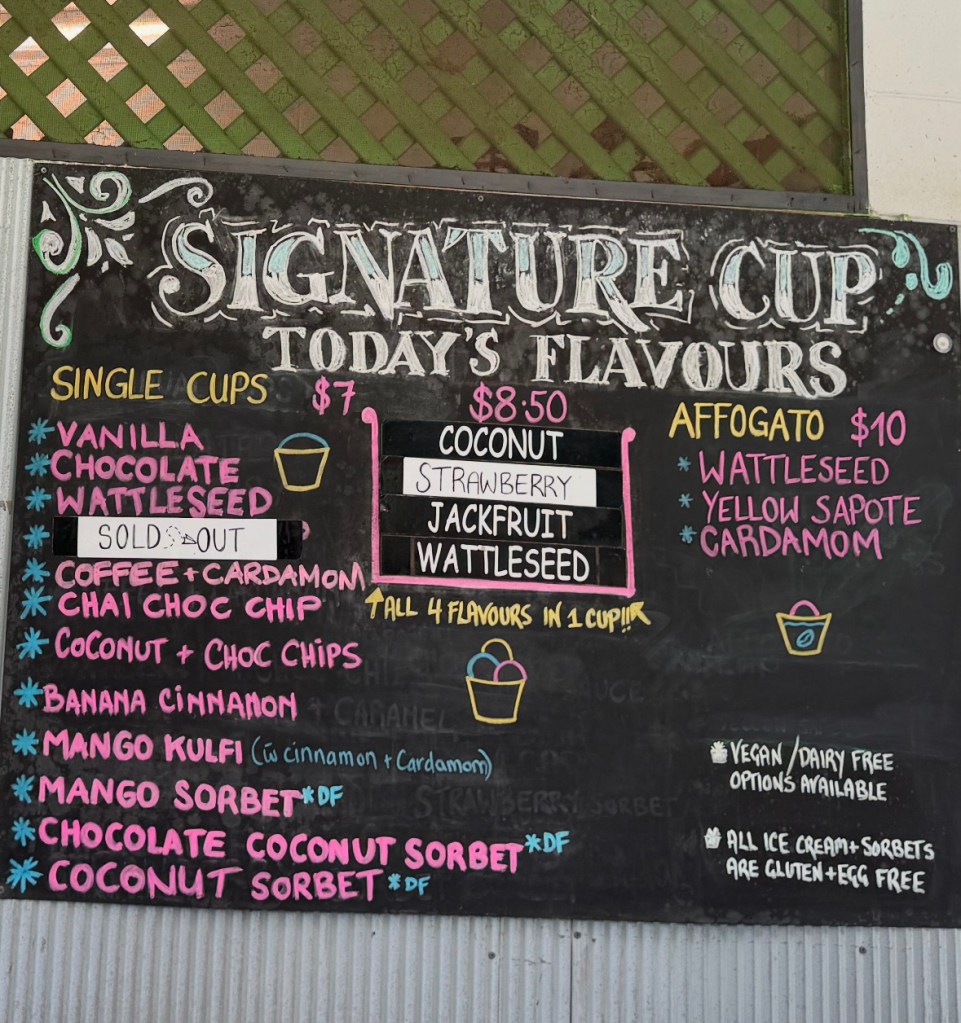 SIGNATURE CUP
TODAY'S FLAVOURS
SINGLE CUPS $7
*VANILLA
*CHOCOLATE
*WATTLESEED
*SOLD OUT
*COFFEE + CARDAMOM
*CHAI CHOC CHIP
*COCONUT + CHOC CHIPS
*BANANA CINNAMON
*MANGO KULFI (w cinnamon + Cardamom)
*MANGO SORBET *DF
*CHOCOLATE COCONUT SORBET *DF
*COCONUT SORBET *DF
$8.50
COCONUT
STRAWBERRY
JACKFRUIT
WATTLESEED
↑ALL 4 FLAVOURS IN 1 CUP!!
AFFOGATO $10
*WATTLESEED
*YELLOW SAPOTE
*CARDAMOM
*VEGAN/DAIRY FREE
OPTIONS AVAILABLE
*ALL ICE CREAM + SORBETS
ARE GLUTEN + EGG FREE
CARAMEL
STRAWBERRY SORBET